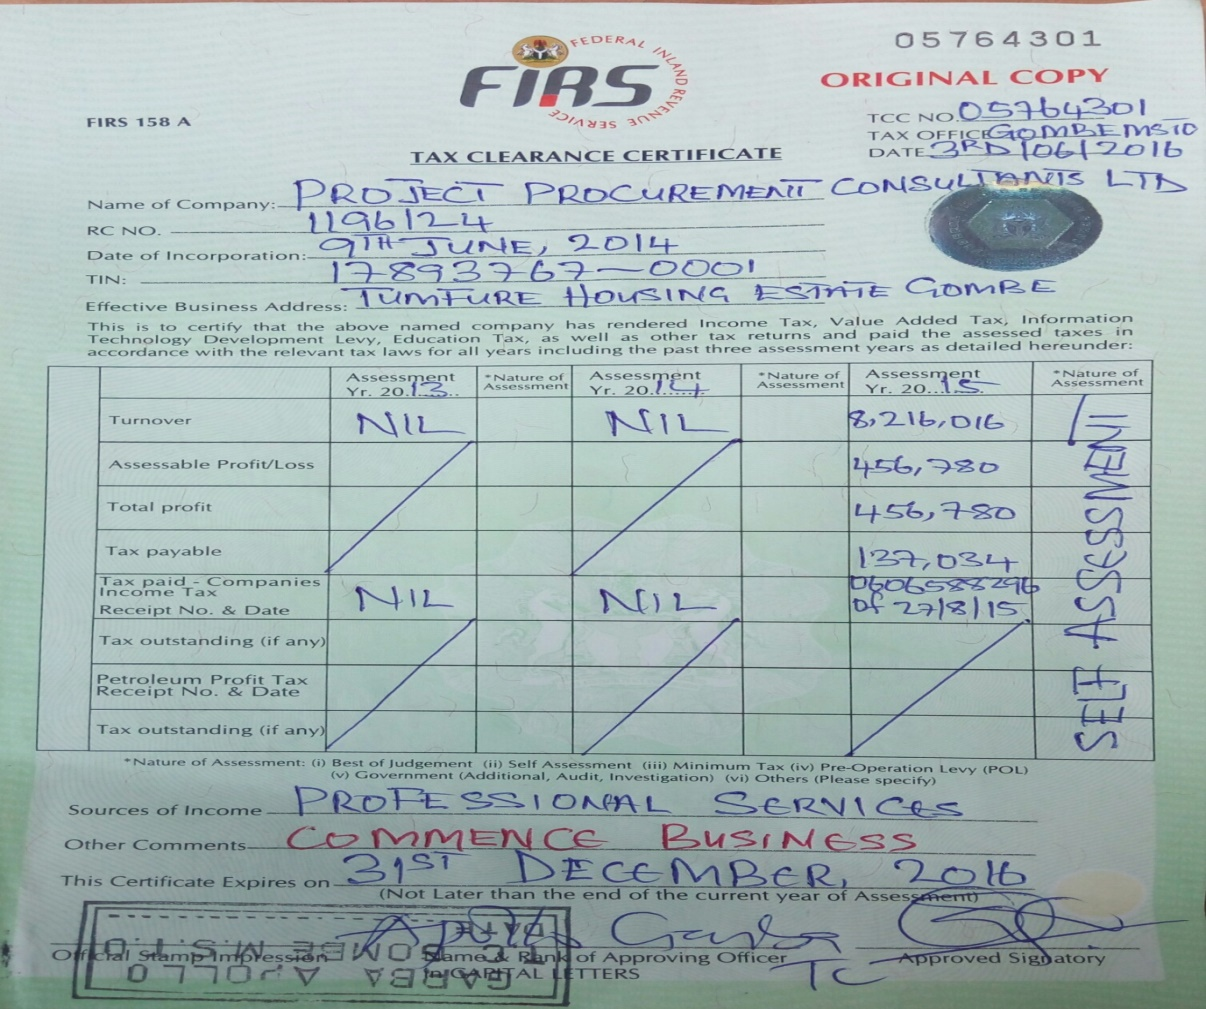 05764301
FEDERAL INLAND REVENUE SERVICE
FIRS
ORIGINAL COPY
FIRS 158 A
TCC NO. 05764301
TAX OFFICE GOMBE MSTO
DATE 3RD/06/2016
TAX CLEARANCE CERTIFICATE
Name of Company: PROJECT PROCUREMENT CONSULTANTS LTD
RC NO. 1196124
Date of Incorporation: 9TH JUNE, 2014
TIN: 17893767-0001
Effective Business Address: TUMFURE HOUSING ESTATE GOMBE
This is to certify that the above named company has rendered Income Tax, Value Added Tax, Information
Technology Development Levy, Education Tax, as well as other tax returns and paid the assessed taxes in
accordance with the relevant tax laws for all years including the past three assessment years as detailed hereunder:
Assessment Yr. 20.13 *Nature of Assessment Assessment Yr. 20.14 *Nature of Assessment Assessment Yr. 20.15 *Nature of Assessment
Turnover NIL NIL 8,216,016
Assessable Profit/Loss 456,780
Total profit 456,780
Tax payable 137,034
Tax paid - Companies Income Tax Receipt No. & Date NIL NIL 0606588296 of 27/8/15
Tax outstanding (if any)
Petroleum Profit Tax Receipt No. & Date
Tax outstanding (if any)
SELF ASSESSMENT
*Nature of Assessment: (i) Best of Judgement (ii) Self Assessment (iii) Minimum Tax (iv) Pre-Operation Levy (POL)
(v) Government (Additional, Audit, Investigation) (vi) Others (Please specify)
Sources of Income PROFESSIONAL SERVICES
Other Comments COMMENCE BUSINESS
This Certificate Expires on 31ST DECEMBER, 2016
(Not Later than the end of the current year of Assessment)
Apollo Garba
Official Stamp Impression Name & Rank of Approving Officer Approved Signatory
in CAPITAL LETTERS TC
DATE
GOMBE M.S.T.O
GARBA APOLLO